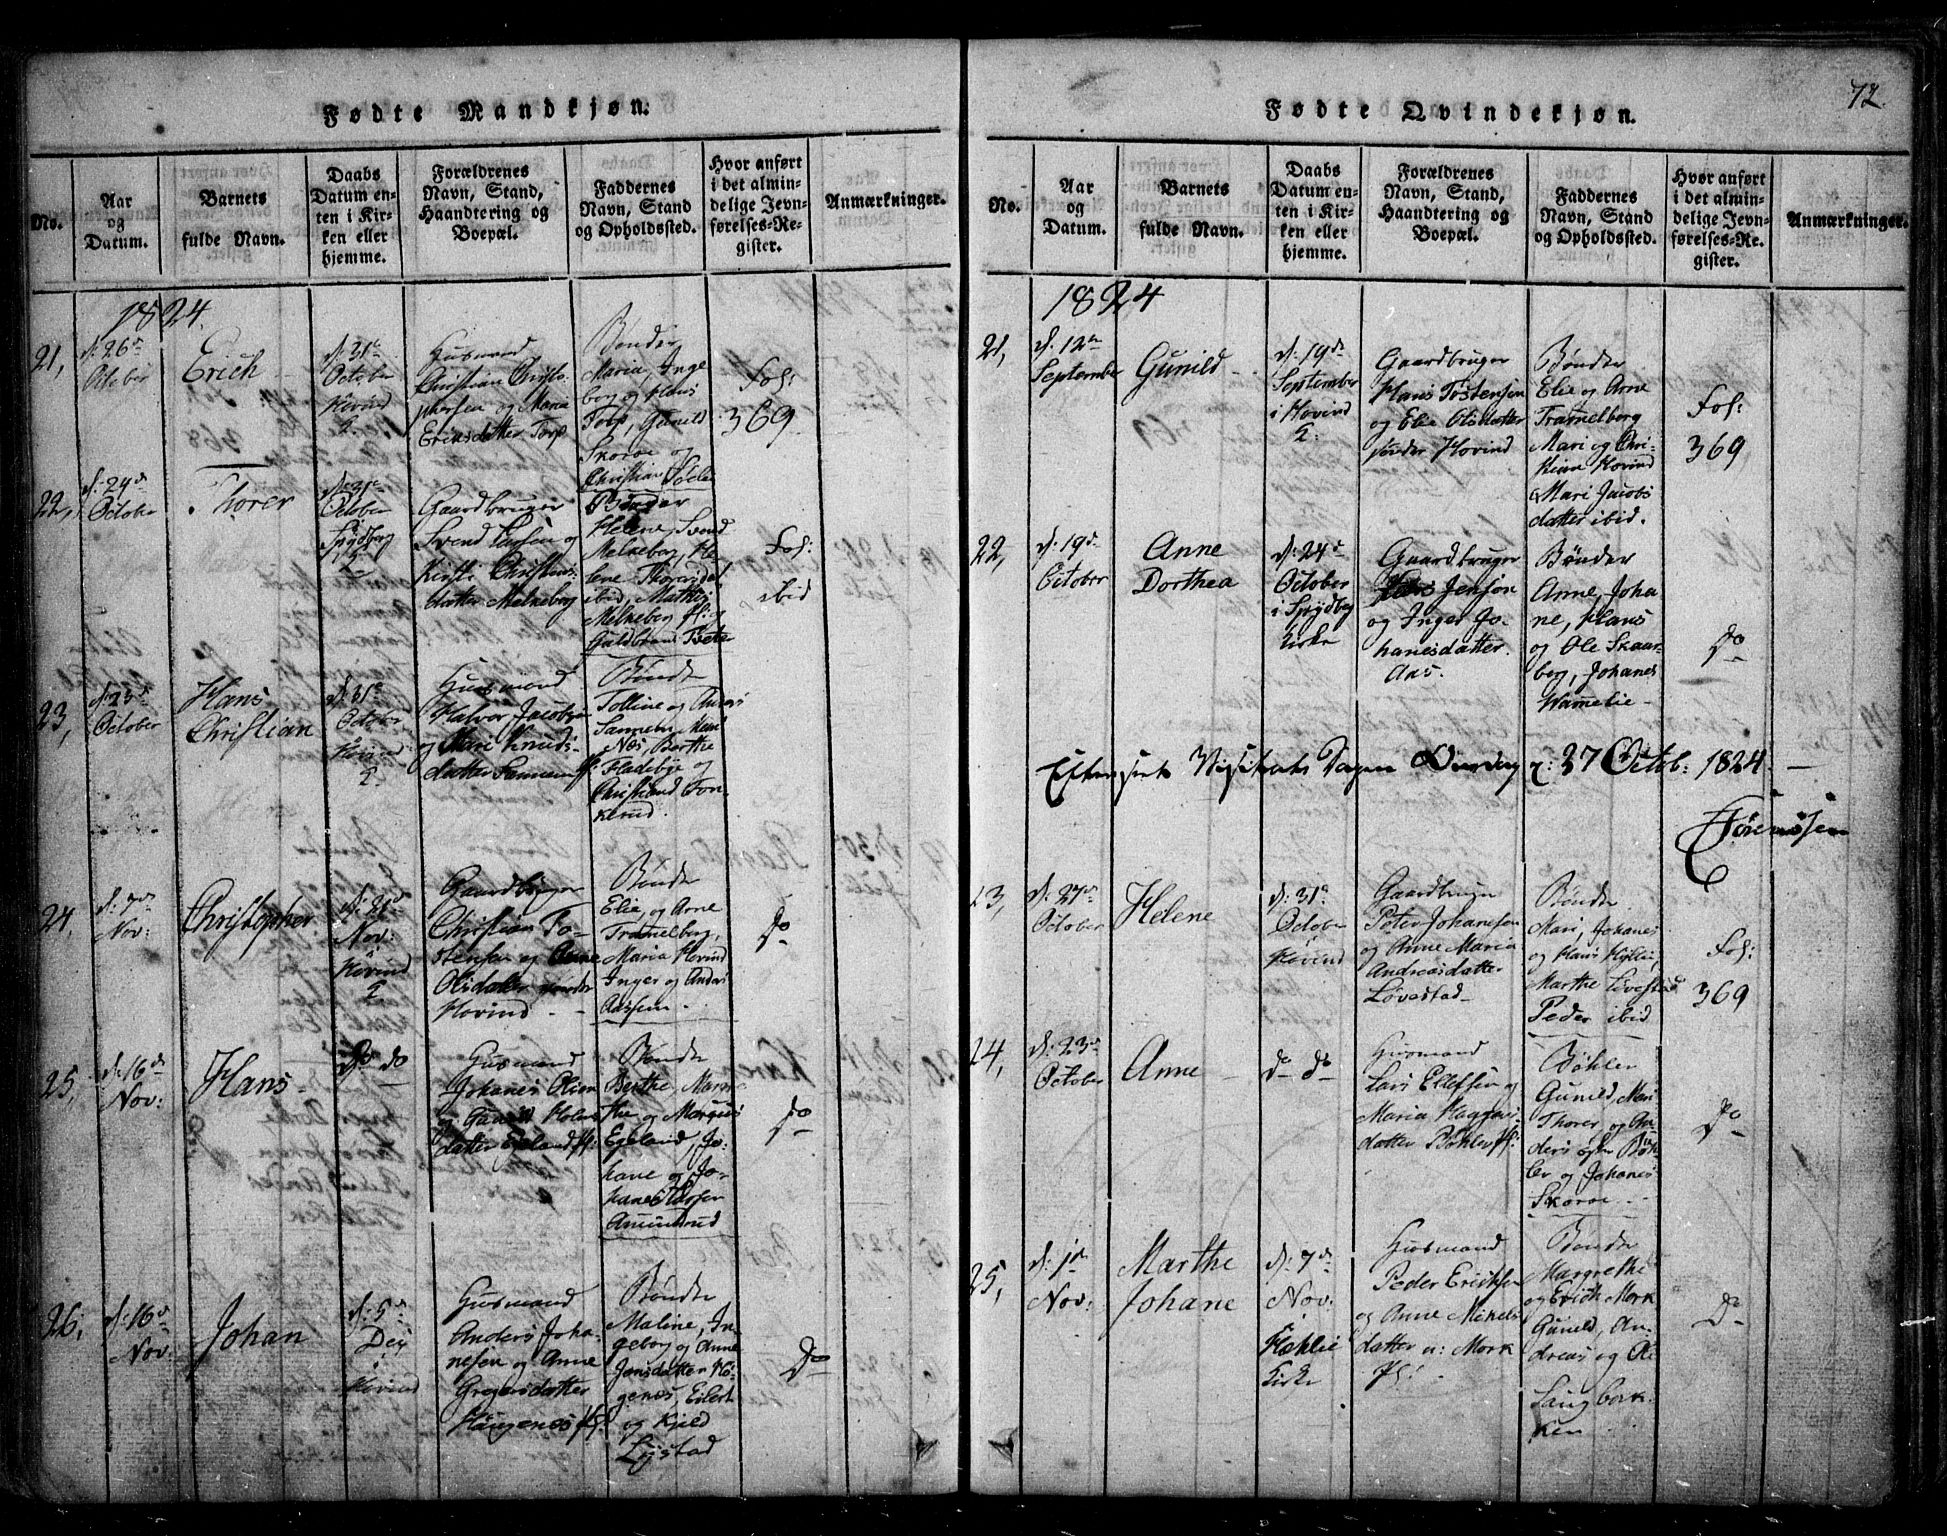 72.
Fødte Mandkjøn.
No.
Aar
og
Datum.
Barnets
fulde Navn.
Daabs
Datum en-
ten i Kir-
ken eller
hjemme.
Forældrenes
Navn, Stand,
Haandtering og
Boepæl.
Faddernes
Navn, Stand
og Opholdssted.
Hvor anført
i det almin-
delige Jevn-
førelses-Re-
gister.
Anmærkninger.
1824.
21,
d: 26de
October
Erich
d: 31te
October
Hovind
K
Husmand
Christian Christo-
phersen og Maria
Ericsdatter Torp
Bønder
Maria, Inge
borg og Hans
Torp, Gunild
Skoroe og
Christian
Fol:
369
22,
d: 29de
October
Thorer
d: 31te
October
Spydberg
K
Gaardbruger
Svend Larsen og
Kirsti Christens-
datter Melneborg
Bønder
Helene, Svend
Melneborg, He-
lene Thorersdat
ibid, Mathis
Melneborg og
Guldbrand Tveter
Fol:
ibid
23,
October
Hans
Christian
d: 31te
October
Hovind
K
Husmand
Halvor Jacobsen
og Mari Knuds-
datter
Bønder
Tolline og
Berthe
Fladebye og
Christian
24,
d: 7de
Nov:
Christopher
d: 21de
Nov:
Hovind
K
Gaardbruger
Christian To-
stensen og Anne
Olsdatter søndre
Hovind
Bønder
Elie, og Arne
Tramelborg,
Maria Hovind
Inger og Anders
do
25,
d: 16de
Nov:
Hans
do do
Husmand
Johanes
og Gunild
datter Egeland
Bønder
Berthe, Margre-
the, og Marqus
Egeland, Jo-
hane og Jo-
hanes Larsen
Amundrud
do
26,
d: 16de
Nov:
Johan
d: 5te
Hovind
Husmand
Anders Joha-
nesen og Anne
Gregersdatter
Haugenes
Bønder
Maline, In-
geborg og Anne
Jonsdatter
og Kield
Lystad
do
Fødte Qvindekjøn.
No.
Aar
og
Datum.
Barnets
fulde Navn.
Daabs
Datum en-
ten i Kir-
ken eller
hjemme.
Forældrenes
Navn, Stand,
Haandtering og
Boepæl.
Faddernes
Navn, Stand
og Opholdssted.
Hvor anført
i det almin-
delige Jevn-
førelses-Re-
gister.
Anmærkninger.
1824
21,
d: 12te
September
Gunild
d: 19de
September
i Hovind
K.
Gaardbruger
Hans Tostensen
og Elie Olsdatter
søndre Hovind
Bønder
Elie og Arne
Tramelborg
Mari og Chri-
stian Hovind
Mari Jacobs
datter ibid.
Fol:
369
22,
d: 19de
October
Anne
Dorthea
d: 24de
October
i Spydberg
Kirke
Gaardbruger
Jenson
og Inger Jo-
hanesdatter
Aas.
Bønder
Anne, Joha
ne, Hans
og Ole Skaar-
borg, Johanes
Wammelie
do
Eftersiet Visitats Dagen Onsdag d: 27 Octob: 1824.
Sörenssen
23,
d: 27de
October
Helene
d: 31te
October
Hovind
Gaardbruger
Peter Johanesen
og Anne Maria
Andreasdatter
Løvestad
Bønder
Mari, Johanes
og Hans Hyllie,
Marthe Løvestad
Peder ibid
Fol:
369
24,
d: 23de
October
Anne
do do
Husmand
Lars Ellefsen og
Maria Haagens-
datter Bøhler
Bøhler
Gunild, Mari
Thorer, og An-
ders Bøh-
ler og Johanes
Skoroe
do
25,
d: 1te
Nov:
Marthe
Johane
d: 7de
Nov:
Hæhlie
Kirke
Husmand
Peder Ericksen
og Anne Mikels-
datter u: Mork
Bønder
Margrethe
og Erich Mork
Gunild, An-
dreas og Ole
Langbark-
ken
do